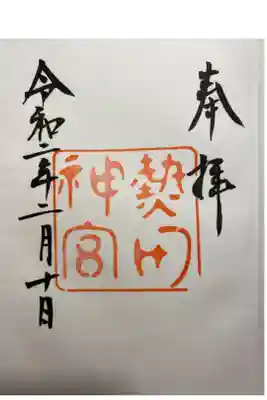 奉拝
熱田
神宮
令和二年二月十日